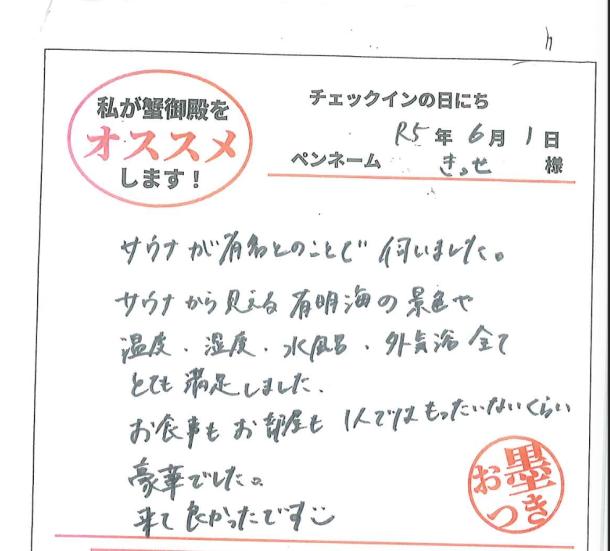 私が蟹御殿を
オススメ
します!
チェックインの日にち
R5年6月1日
ペンネーム きっせ 様
サウナが有名とのことで伺いました。
サウナから見える有明海の景色や
温度・湿度・水風呂・外気浴全て
とても満足しました。
お食事もお部屋も1人ではもったいないくらい
豪華でした。
来て良かったです
お墨
つき